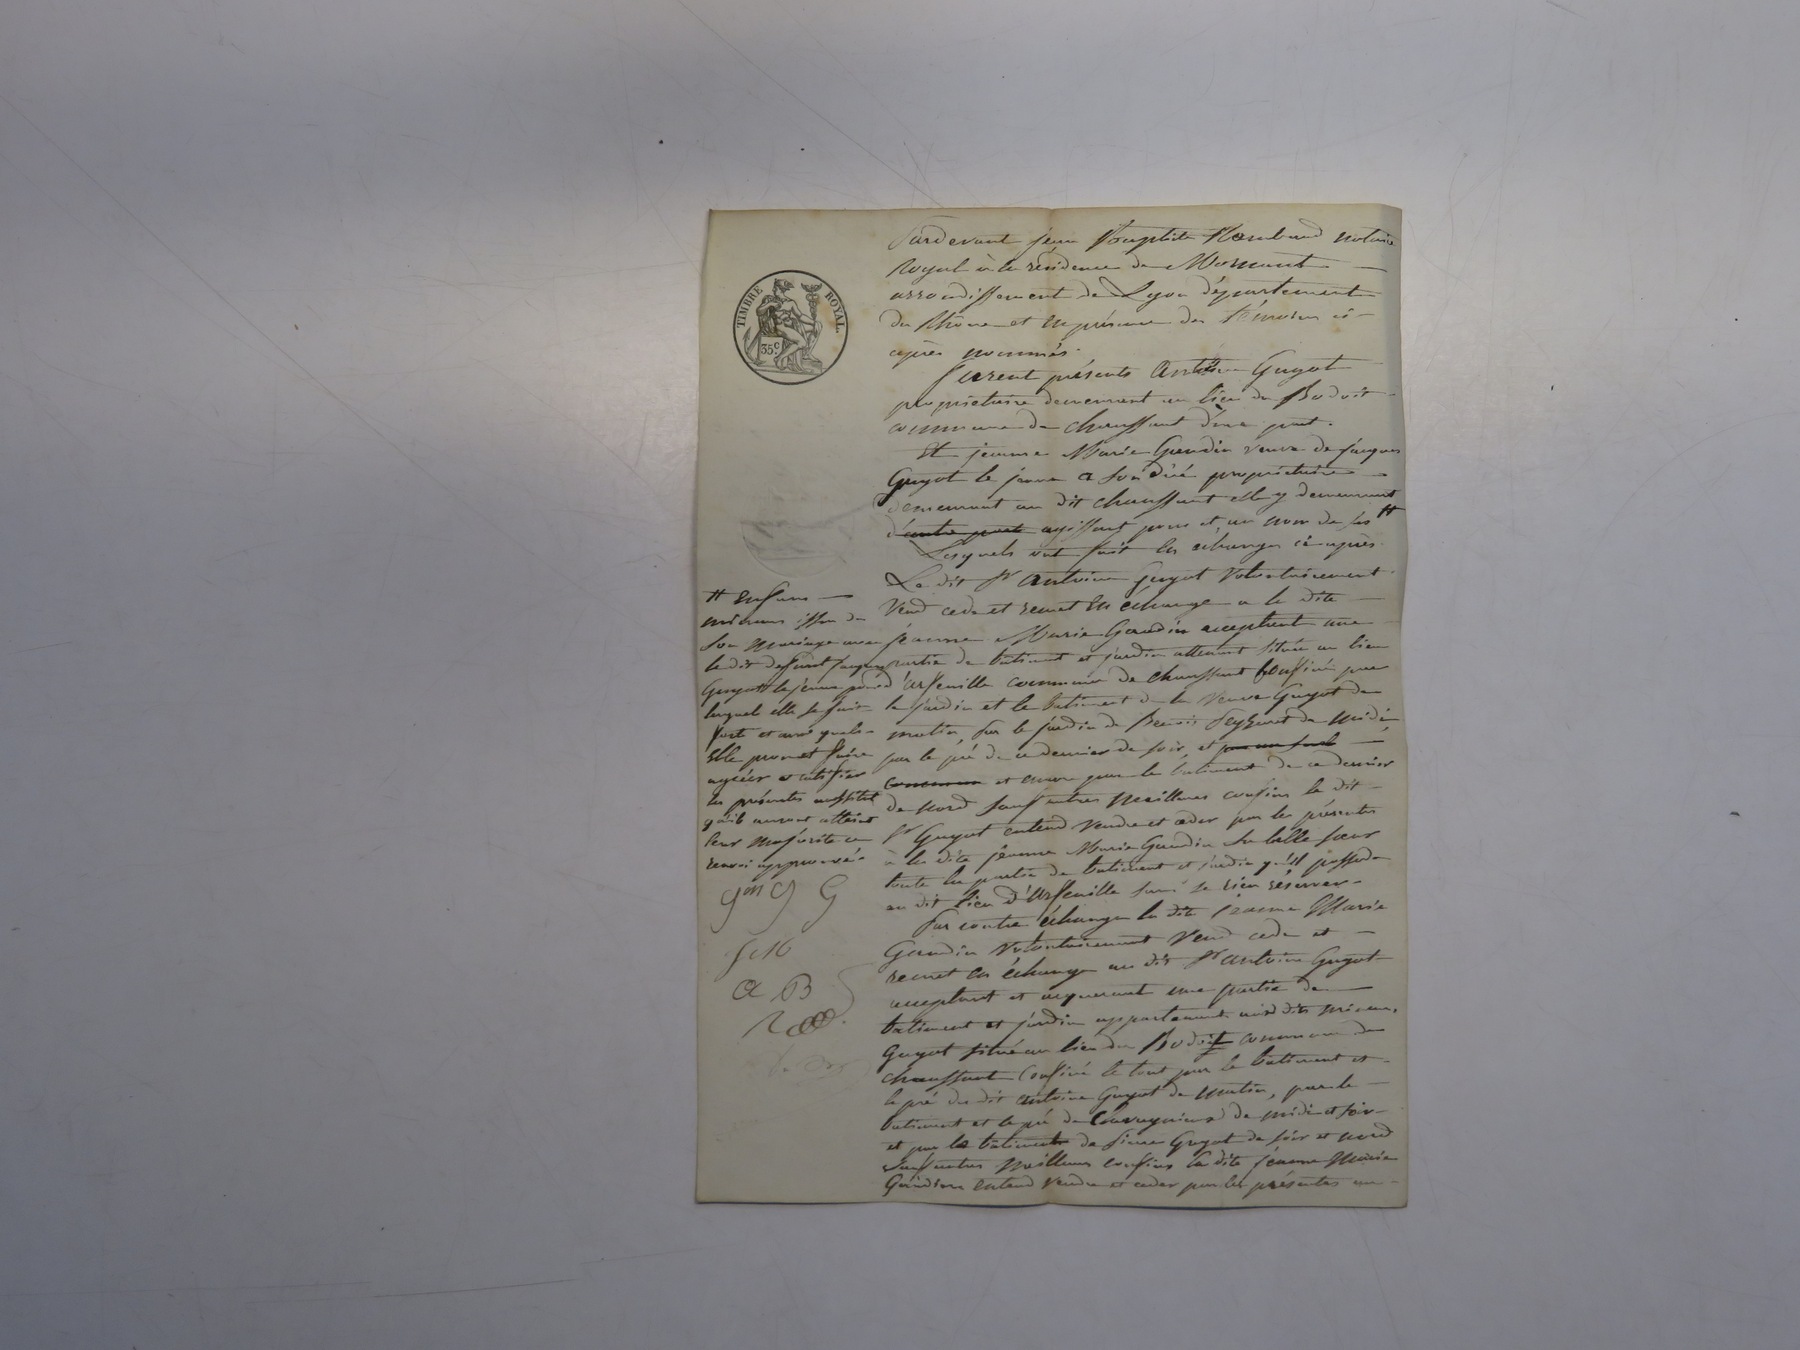 TIMBRE ROYAL.
35c.
Pardevant jean Baptiste Rambaud notaire
Royal à la résidence de Mornant
arrondissement de Lyon département
du Rhône et en présence des témoins ci-
après nommés.
furent présents Antoine Guyot
propriétaire demeurant au lieu du Bodoit
commune de chaussant d'une part.
Et jeanne Marie Gaudin veuve de jacques
Guyot le jeune a son décé propriétaire
demeurant au dit chaussant elle y demeurant
d'autre part agissant pour et au nom de ses #
Lesquels ont fait les échanges ci après.
Le dit Sr antoine Guyot volontairement
vend cede et remet en échange a la dite
jeanne Marie Gaudin acceptant une
partie de batiment et jardin attenant située au lieu
d'arfeuille commune de chaussant confiné par
le jardin et le batiment de la veuve Guyot de
matin, par le jardin de Benoit de midi
par le pré de ce dernier de soir, et par un
commun et encore par le batiment de ce dernier
de nord sauf autres meilleurs confins le dit
Sr Guyot entend vendre et ceder par les présentes
à la dite jeanne Marie Gaudin sa belle soeur
toute la partie de batiment et jardin qu'il possede
au dit lieu d'arfeuille sans se rien réserver
Par contre échange la dite jeanne Marie
Gaudin volontairement vend cede et
remet en échange au dit Sr antoine Guyot
acceptant et acquerant une partie de
batiment et jardin appartenant aux dits mineurs
Guyot situé au lieu du Bodoit commune de
chaussant confiné le tout par le batiment et
le pré du dit antoine Guyot de matin, par le
batiment et le pré de de midi et soir
et par le batiment de Guyot de soir et nord
sauf autres meilleurs confins la dite jeanne Marie
Gaudin entend vendre et ceder par les présentes au
# enfans
mineurs issus de
son mariage avec
le dit defunt jacques
Guyot le jeune pour
lequel elle se fait
fort et auxquels
elle promet faire
agréer et ratifier
les présentes aussitot
qu'ils auront atteint
leur majorité en
renvoi approuvé.
G
A B